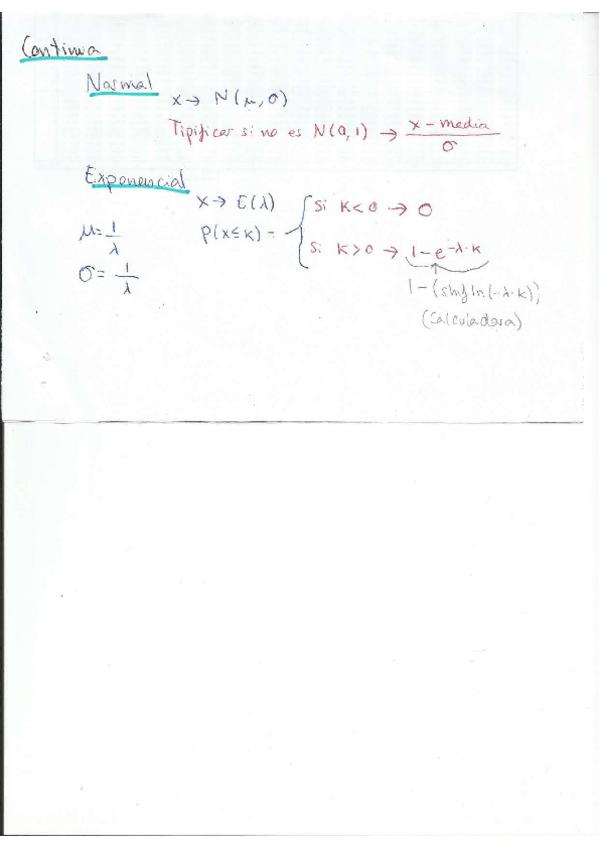 Continua
Normal
x → N(μ, σ)
Tipificar si no es N(0,1) → x - media / σ
Exponencial
x → E(λ)
μ = 1/λ
P(x≤k) =
Si K<0 → 0
Si K>0 → 1-e^-λ·k
σ = 1/λ
1-(shif ln(-λ·k))
(Calculadora)